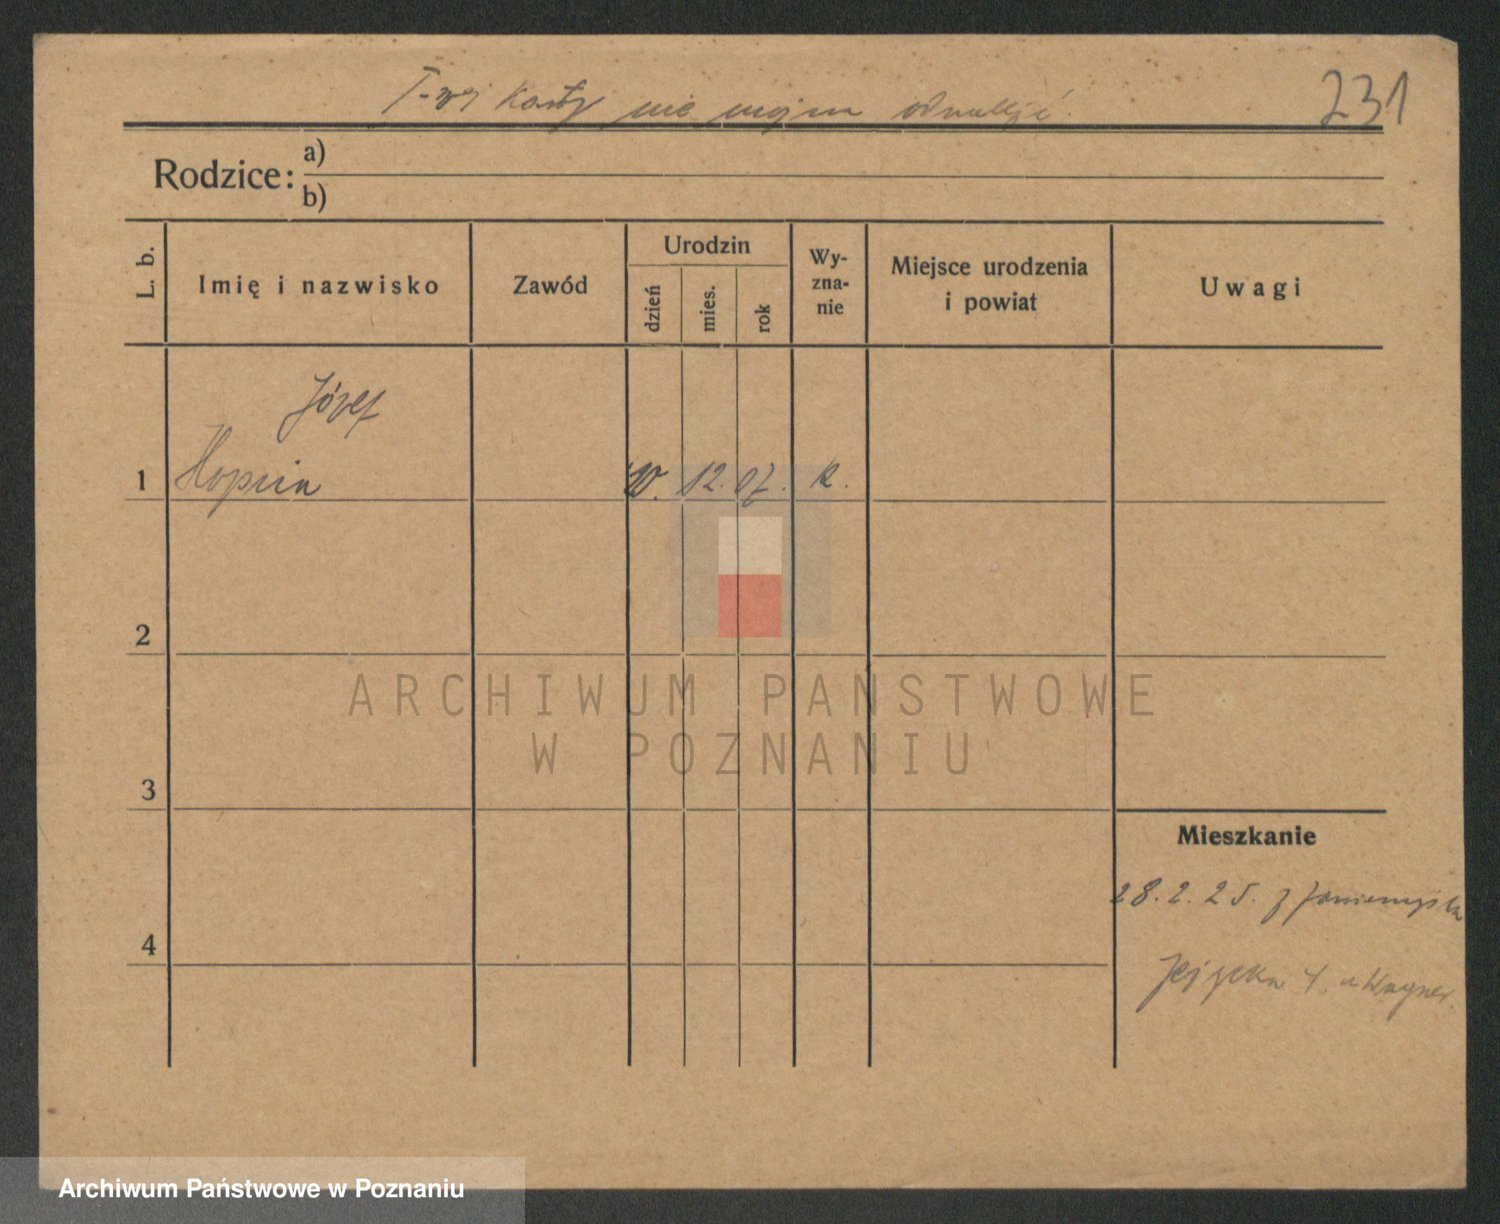 I-szej karty nie można odnaleźć.
231
Rodzice:
a)
b)
L. b.
Imię i nazwisko
Zawód
Urodzin
dzień
mies.
rok
Wy-
zna-
nie
Miejsce urodzenia
i powiat
Uwagi
Józef
1
10. 12. 07. k.
2
3
4
Mieszkanie
28.2.25. z Zaniemyśla
4. u Wagner.
ARCHIWUM PAŃSTWOWE
W POZNANIU
Archiwum Państwowe w Poznaniu